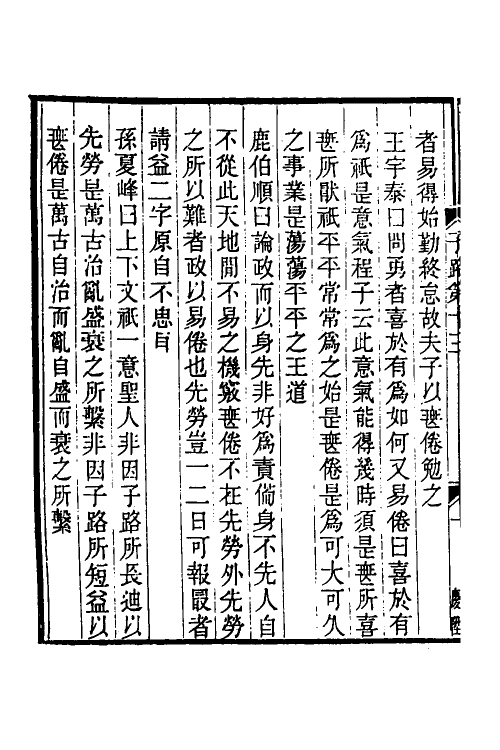 者易得始勤終怠故夫子以無倦勉之
王宇泰曰問勇者喜於有為如何又易倦曰喜於有
為祇是意氣程子云此意氣能得幾時須是無所喜
無所猒祇平平常常為之始是無倦是為可大可久
之事業是蕩蕩平平之王道
鹿伯順曰論政而以身先非好為責備身不先人自
不從此天地閒不易之機竅無倦不在先勞外先勞
之所以難者政以易倦也先勞豈一二日可報最者
請益二字原自不忠旨
孫夏峰曰上下文祇一意聖人非因子路所長迪以
先勞是萬古治亂盛衰之所繫非因子路所短益以
無倦是萬古自治而亂自盛而衰之所繫
子路第十三